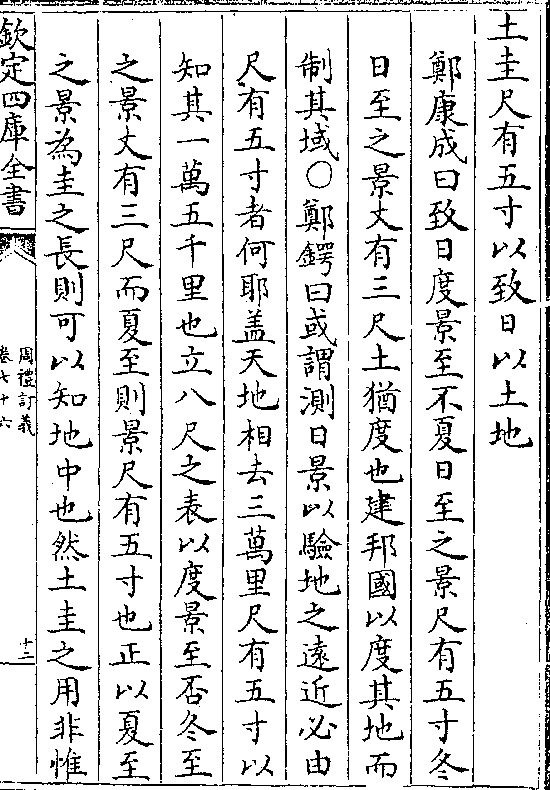 土圭尺有五寸以致日以土地
鄭康成曰致日度景至不夏日至之景尺有五寸冬
日至之景丈有三尺土猶度也建邦國以度其地而
制其域〇鄭鍔曰或謂測日景以驗地之遠近必由
尺有五寸者何耶盖天地相去三萬里尺有五寸以
知其一萬五千里也立八尺之表以度景至否冬至
之景丈有三尺而夏至則景尺有五寸也正以夏至
之景為圭之長則可以知地中也然土圭之用非惟
欽定四庫全書
周禮訂義
卷七十六
十二